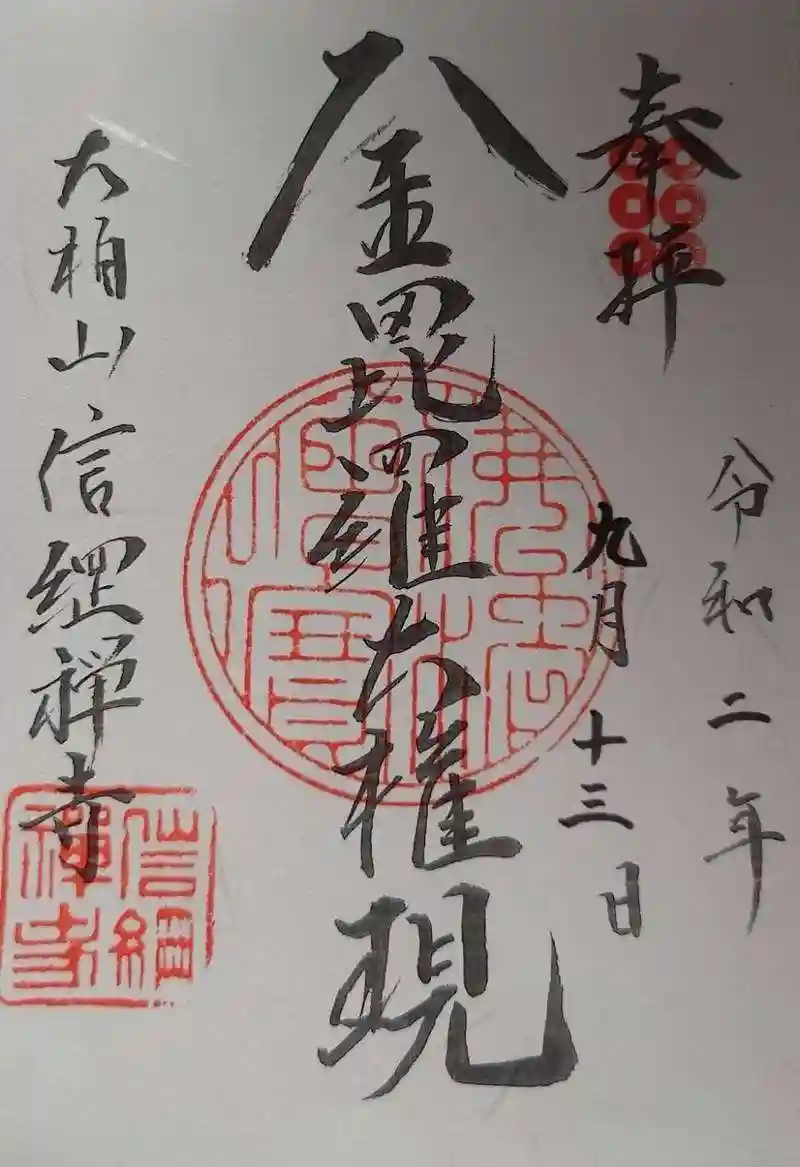 奉拝
令和二年
九月十三日
金毘羅大権現
大柏山信綱禅寺
佛法僧寳
信綱
禅寺